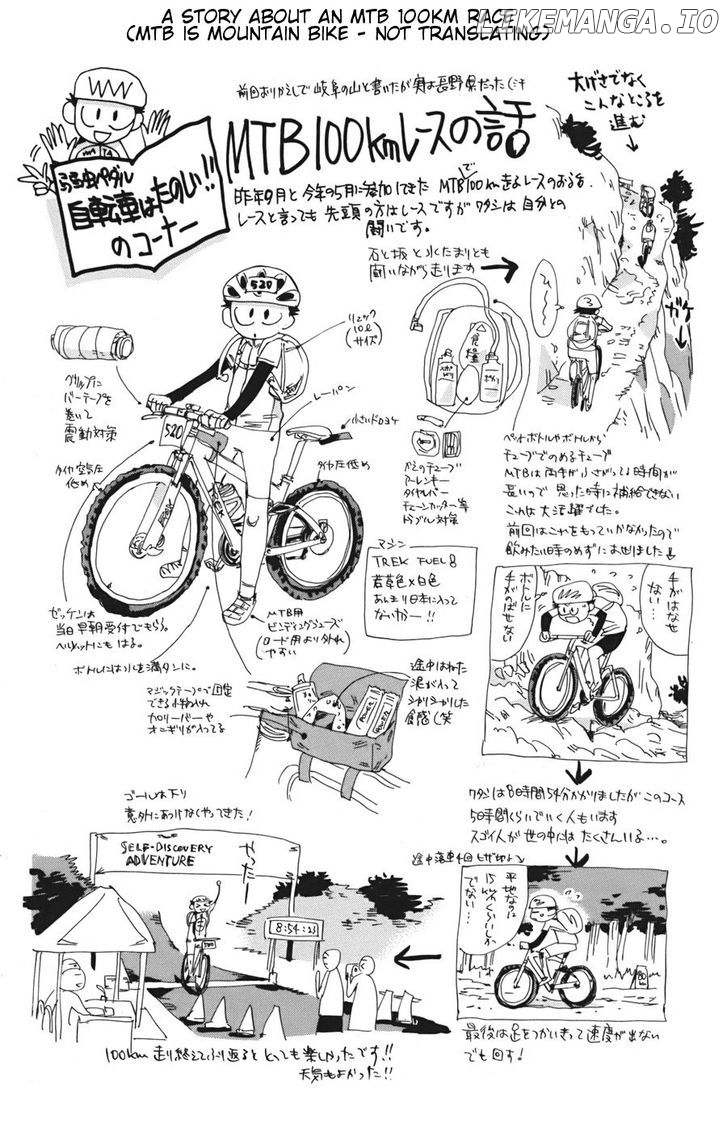 A STORY ABOUT AN MTB 100KM RACE
(MTB IS MOUNTAIN BIKE - NOT TRANSLATING)
LIKEMANGA.IO
前回ありがとして岐阜の山と書いたが実は長野県だった
弱虫ペダル
自転車はたのしい!!
のコーナー
MTB100kmレースの話
昨年9月と今年の5月に参加してきたMTBで100km走るレースのおはなし。
レースと言っても先頭の方はレースですがワタシは自分との
闘いです。
大げさでなく
こんなところを
進む
ガケ
石と坂と水たまりとも
闘いながら走ります
520
リュック
(10ℓ
サイズ)
グリップに
バーテープを
巻いて
震動対策
レーパン
小さいドロヨケ
タイヤ空気圧
低め
520
タイヤ圧低め
食糧
かえのチューブ
アーレンキー
タイヤレバー
チェーンカッター等
トラブル対策
ペットボトルやボトルから
チューブでのめるチューブ
MTBは両手がふさがってる時間が
長いので思った時に補給できない
これは大活躍でした。
前回はこれをもっていかなかったので
飲みたい時のめずに
マシン
TREK FUEL 8
若草色×白色
あんまり日本に入って
ないかー!!
ゼッケンは
当日早朝受付でもらう。
ヘルメットにもはる。
ボトルには水を満タンに。
MTB用
ビンディングシューズ
(ロード用より外れ
やすい)
手がはなせ
ない…
ボトルに
手がのばせない
マジックテープで固定
できる小物入れ
カロリーバーや
オニギリが入ってる
途中はねた
泥が入って
ジャリジャリした
食感(笑
ワタシは8時間54分かかりましたがこのコース
5時間くらいでいく人もいます
スゴイ人が世の中にはたくさんいる…。
ゴールは下り
意外にあっけなくやってきた!
SELF-DISCOVERY
ADVENTURE
やったー
8:54:23
途中落車4回
平地なのに
15km/hくらいしか
でない…
80
最後は足をつかいきって速度が出ない
でも回す!
100km走り終えてふり返るととっても楽しかったです!!
天気もよかった!!